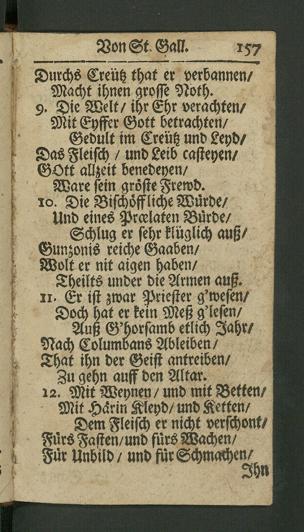 Von St. Gall. 157
Durchs Creütz that er verbannen/
Macht ihnen grosse Noth.
9. Die Welt/ ihr Ehr verachten/
Mit Eyffer Gott betrachten/
Gedult im Creütz und Leyd/
Das Fleisch / und Leib casteyen/
GOtt allzeit benedeyen/
Ware sein gröste Frewd.
10. Die Bischöffliche Würde/
Und eines Prælaten Bürde/
Schlug er sehr klüglich auß/
Gunzonis reiche Gaaben/
Wolt er nit aigen haben/
Theilts under die Armen auß.
11. Er ist zwar Priester g'wesen/
Doch hat er kein Meß g'lesen/
Auß G'horsamb etlich Jahr/
Nach Columbans Ableiben/
That ihn der Geist antreiben/
Zu gehn auff den Altar.
12. Mit Weynen/ und mit Betten/
Mit Härin Kleyd/ und Ketten/
Dem Fleisch er nicht verschont/
Fürs Fasten/und fürs Wachen/
Für Unbild/ und für Schmachen/
Ihn